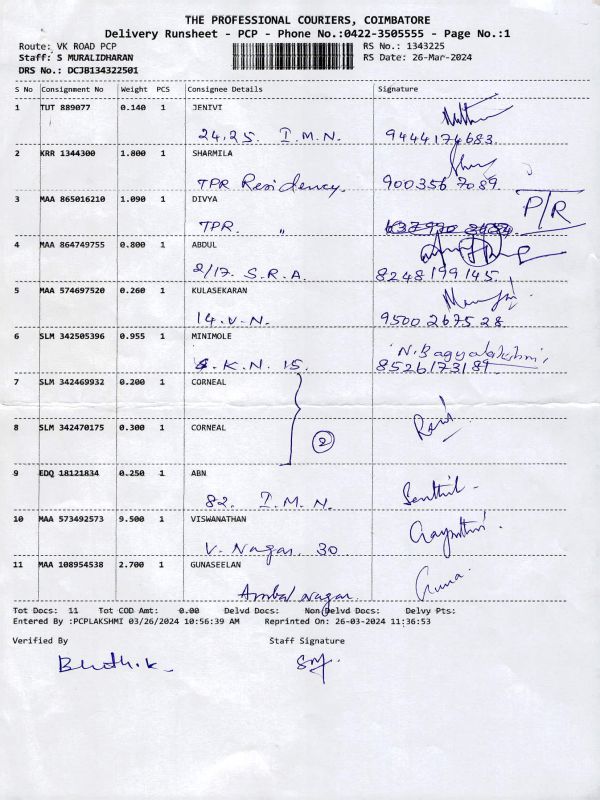 THE PROFESSIONAL COURIERS, COIMBATORE
Delivery Runsheet - PCP - Phone No.:0422-3505555 - Page No.:1
Route: VK ROAD PCP RS No.: 1343225
Staff: S MURALIDHARAN RS Date: 26-Mar-2024
DRS No.: DCJB134322501
S No Consignment No Weight PCS Consignee Details Signature
1 TUT 889077 0.140 1 JENIVI
24,25. I.M.N. 9444174683.
2 KRR 1344300 1.800 1 SHARMILA
TPR Residency. 9003567089.
3 MAA 865016210 1.090 1 DIVYA P/R
TPR. "
4 MAA 864749755 0.800 1 ABDUL
2/17. S.R.A. 8248199145.
5 MAA 574697520 0.260 1 KULASEKARAN
14.V.N. 9500267528.
6 SLM 342505396 0.955 1 MINIMOLE N. Bagyalakshmi,
K.N. 15. 8526173189.
7 SLM 342469932 0.200 1 CORNEAL
8 SLM 342470175 0.300 1 CORNEAL 2
9 EDQ 18121834 0.250 1 ABN
82. I.M.N. Senthil.
10 MAA 573492573 9.500 1 VISWANATHAN
V. Nagar. 30. Gayathri.
11 MAA 108954538 2.700 1 GUNASEELAN
Ambal nagar.
Tot Docs: 11 Tot COD Amt: 0.00 Delvd Docs: Non Delvd Docs: Delvy Pts:
Entered By :PCPLAKSHMI 03/26/2024 10:56:39 AM Reprinted On: 26-03-2024 11:36:53
Verified By Staff Signature